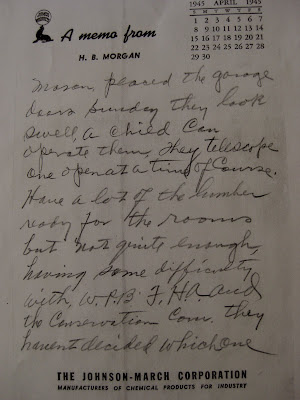 1945 APRIL 1945
S M T W T F S
1 2 3 4 5 6 7
8 9 10 11 12 13 14
15 16 17 18 19 20 21
22 23 24 25 26 27 28
29 30
A memo from
H. B. MORGAN
Mason, placed the garage
doors sunday they look
swell, a child can
operate them, they telescope
one open at a time of Course.
Have a lot of the lumber
ready for the rooms
but not quite enough,
having some difficulty
with, W.P.B. F.HA and
the Conservation Com. they
havent decided which one
THE JOHNSON-MARCH CORPORATION
MANUFACTURERS OF CHEMICAL PRODUCTS FOR INDUSTRY